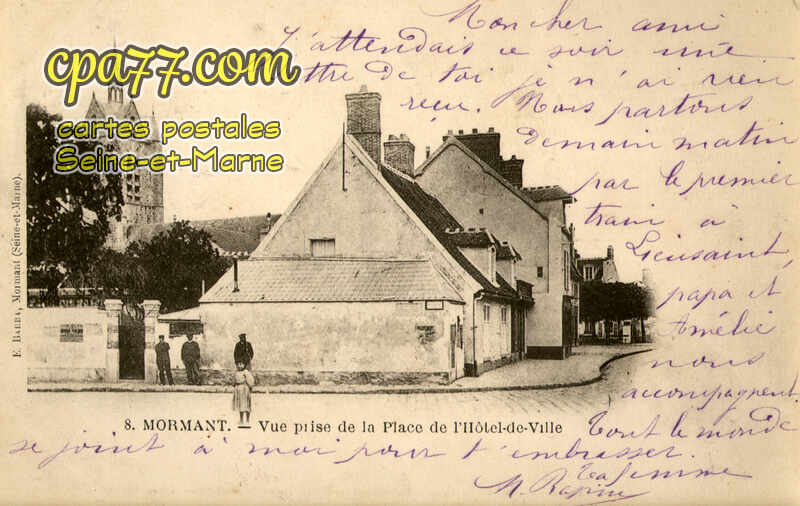 Mon cher ami
J'attendais ce soir une
lettre de toi je n'ai rien
reçu. Nous partons
demain matin
par le premier
train à
Lieusaint,
papa et
Amélie
nous
accompagnent.
Tout le monde
se joint à moi pour t'embrasser.
Ta femme
M.
cpa77.com
cartes postales
Seine-et-Marne
E. Barra, Mormant (Seine-et-Marne).
8. MORMANT. — Vue prise de la Place de l'Hôtel-de-Ville